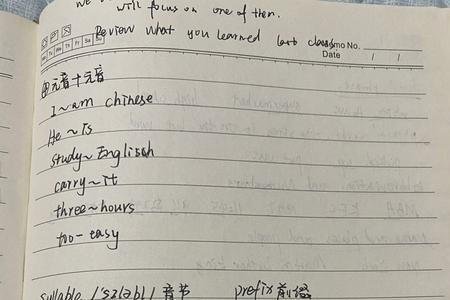 will focus on one of them.
Review what you learned last class
Memo No.
Mo Tu We Th Fr Sa Su
Date / /
④元音+元音
I~am chinese
He~is
study~English
carry~it
three~hours
too-easy
syllable /'sɪləbl/ 音节 prefix 前缀